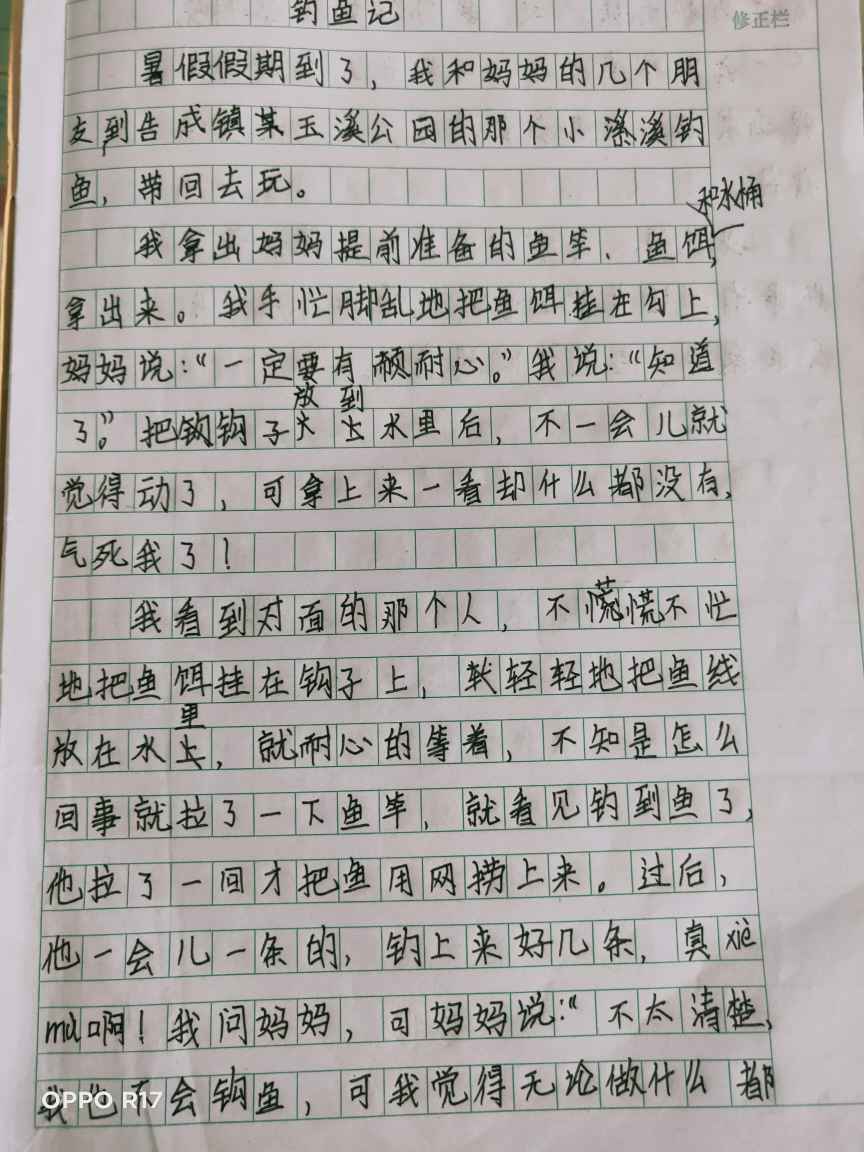 钓鱼记
修正栏
暑假假期到了，我和妈妈的几个朋
友到告成镇某玉溪公园的那个小溪钓
鱼，带回去玩。
和水桶
我拿出妈妈提前准备的鱼竿、鱼饵，
拿出来。我手忙脚乱地把鱼饵挂在勾上，
妈妈说：“一定要有耐心。”我说：“知道
放到
了。”把钩子水里后，不一会儿就
觉得动了，可拿上来一看却什么都没有，
气死我了！
我看到对面的那个人，不慌慌不忙
地把鱼饵挂在钩子上，轻轻地把鱼线
里
放在水，就耐心的等着，不知是怎么
回事就拉了一下鱼竿，就看见钓到鱼了，
他拉了一回才把鱼用网捞上来。过后，
他一会儿一条的，钓上来好几条，真xiàn
mù啊！我问妈妈，可妈妈说：“不太清楚，
我也不会钩鱼，可我觉得无论做什么都
OPPO R17